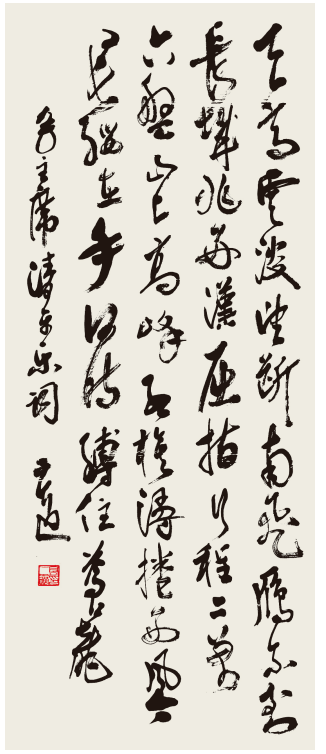 天高雲淡望断南飛雁不到
長城非好漢屈指行程二萬
六盤山上高峰红旗漫捲西風今
日長纓在手何时縛住蒼龍
毛主席清平乐词